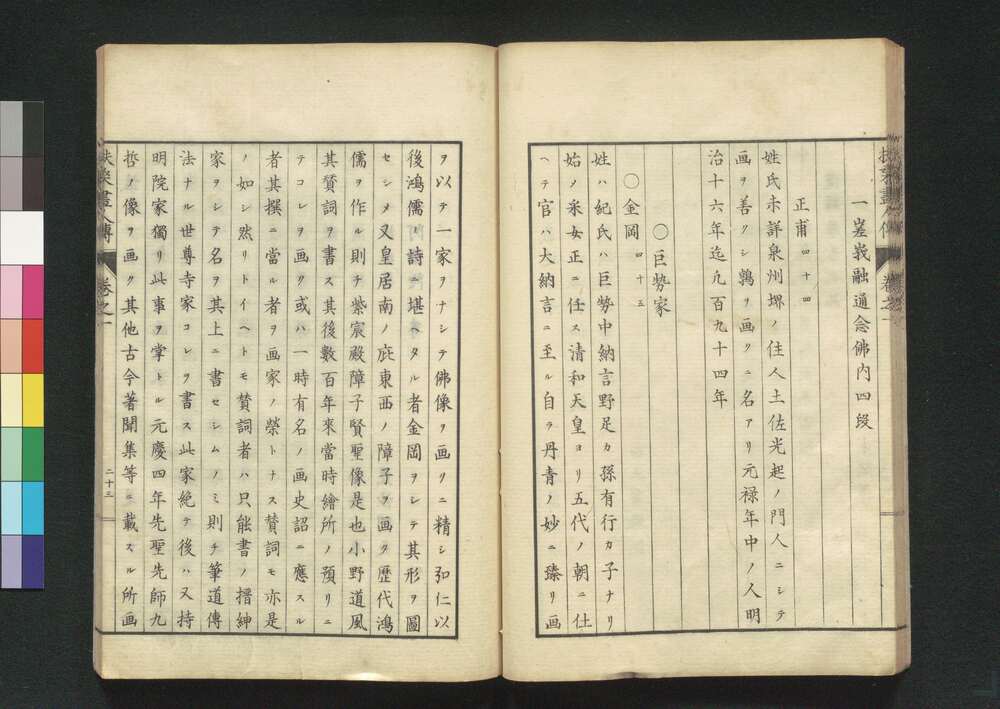 一嵯峩融通念佛内四段
正甫四十四
姓氏未詳泉州堺ノ住人土佐光起ノ門人ニシテ
画ヲ善クシ鶉ヲ画クニ名アリ元禄年中ノ人明
治十六年迄凡百九十四年
〇巨勢家
〇金岡四十五
姓ハ紀氏ハ巨勢中納言野足カ孫有行カ子ナリ
始ノ采女正ニ任ス清和天皇ヨリ五代ノ朝ニ仕
ヘテ官ハ大納言ニ至ル自ラ丹青ノ妙ニ臻リ画
ヲ以テ一家ヲナシテ佛像ヲ画クニ精シ弘仁以
後鴻儒ノ詩ニ堪ヘタル者金岡ヲシテ其形ヲ圖
セシメ又皇居南ノ庇東西ノ障子ヲ画ク歴代鴻
儒ヲ作ル則チ紫宸殿障子賢聖像是也小野道風
其賛詞ヲ書ス其後數百年來當時繪所ノ預リニ
テコレヲ画ク或ハ一時有名ノ画史詔ニ應スル
者其撰ニ當ル者ヲ画家ノ榮トナス賛詞モ亦是
ノ如シ然リトイヘトモ賛詞者ハ只能書ノ搢紳
家ヲシテ名ヲ其上ニ書セシムノミ則チ筆道傳
法ナルシ世尊寺家コレヲ書ス此家絶テ後ハ又持
明院家獨リ此事ヲ掌トル元慶四年先聖先師九
哲ノ像ヲ画ク其他古今著聞集等ニ載スル所画
扶桑畫人傳 卷之一
二十三